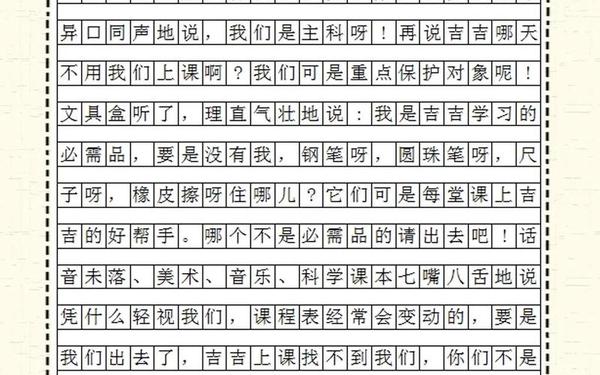 异口同声地说，我们是主科呀！再说吉吉哪天
不用我们上课啊？我们可是重点保护对象呢！
文具盒听了，理直气壮地说：我是吉吉学习的
必需品，要是没有我，钢笔呀，圆珠笔呀，尺
子呀，橡皮擦呀住哪儿？它们可是每堂课上吉
吉的好帮手。哪个不是必需品的请出去吧！话
音未落、美术、音乐、科学课本七嘴八舌地说
凭什么轻视我们，课程表经常会变动的，要是
我们出去了，吉吉上课找不到我们，你们不是